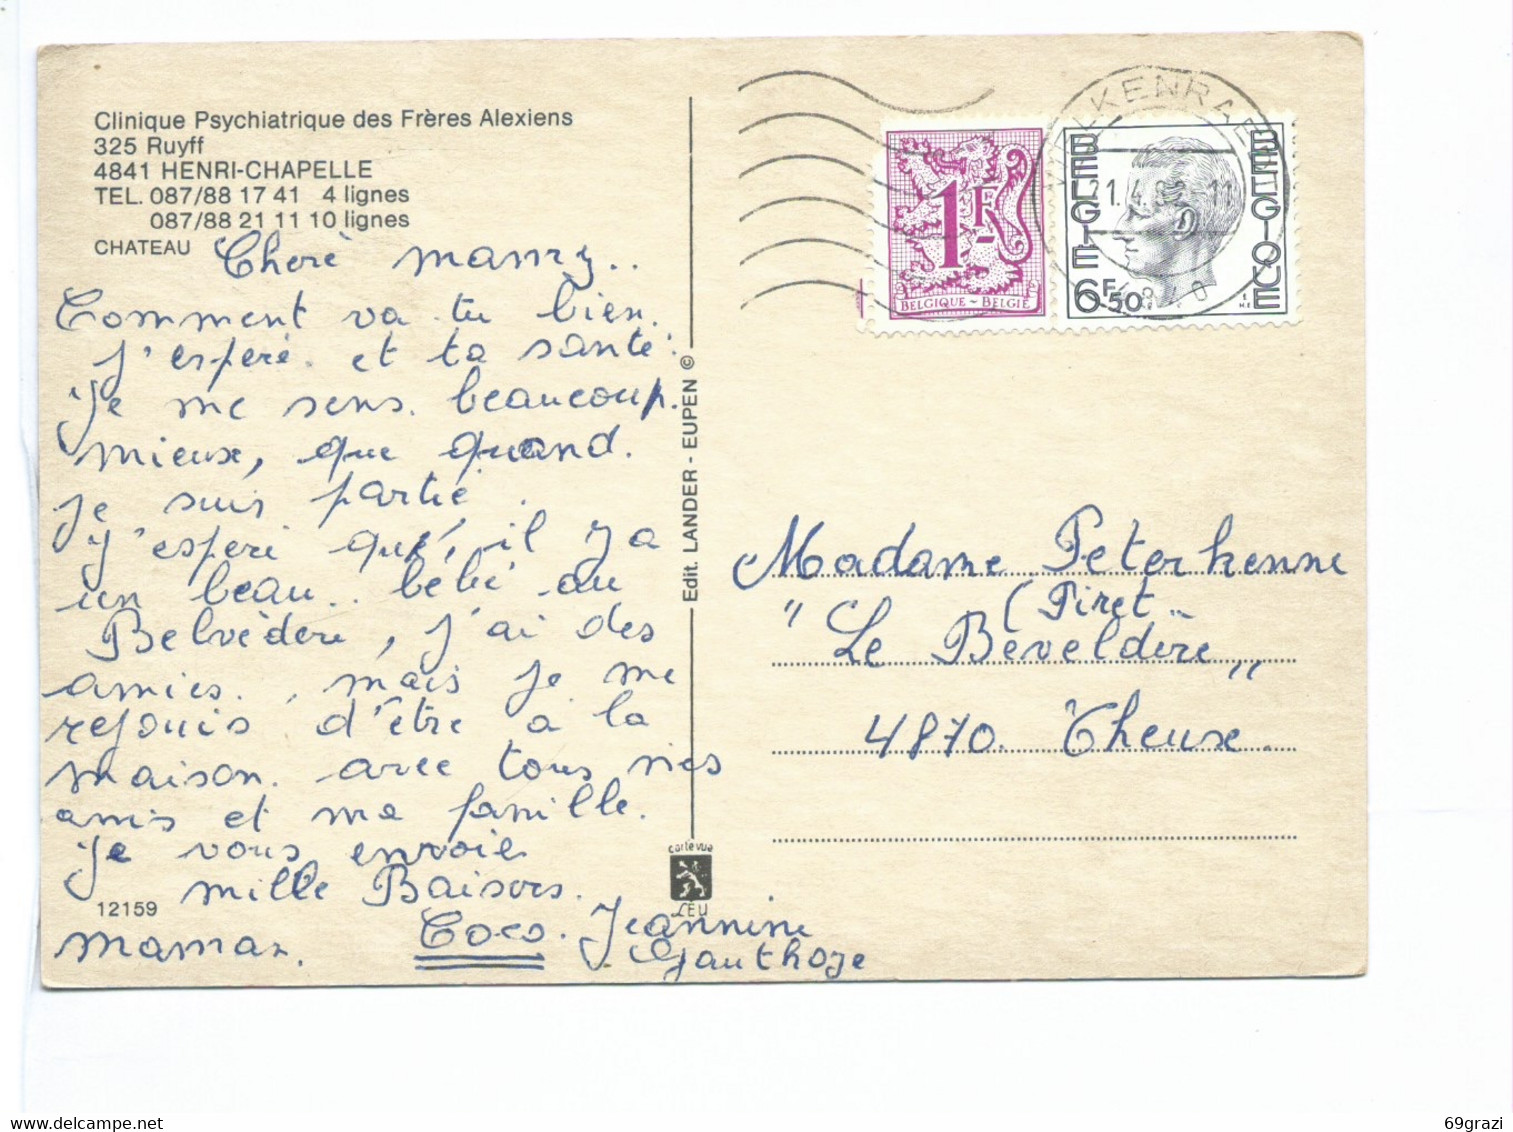 Clinique Psychiatrique des Frères Alexiens
325 Ruyff
4841 HENRI-CHAPELLE
TEL. 087/88 17 41 4 lignes
087/88 21 11 10 lignes
CHATEAU
Cheré mamy..
Comment va tu bien.
j'esperé. et ta santé.
Je me sens. beaucoup.
mieux, que quand.
je suis partie.
J'esperé qu', il y a
un beau.. bébé au
Belvédere, j'ai des
amies., mais je me
rejouis d'être a la
maison. avec tous mes
amis et ma famille.
Je vous envoie
mille Baisers.
12159
maman. Coco. Jeannine
Gauthoje
Edit. LANDER - EUPEN ©
carte vue
LEU
1F
BELGIQUE - BELGIË
BELGIË
BELGIQUE
6F50
21.4.8 -11
4840
Madame Peterkenne
(Piret..
"Le Beveldère"
4870. Theux.
69grazi